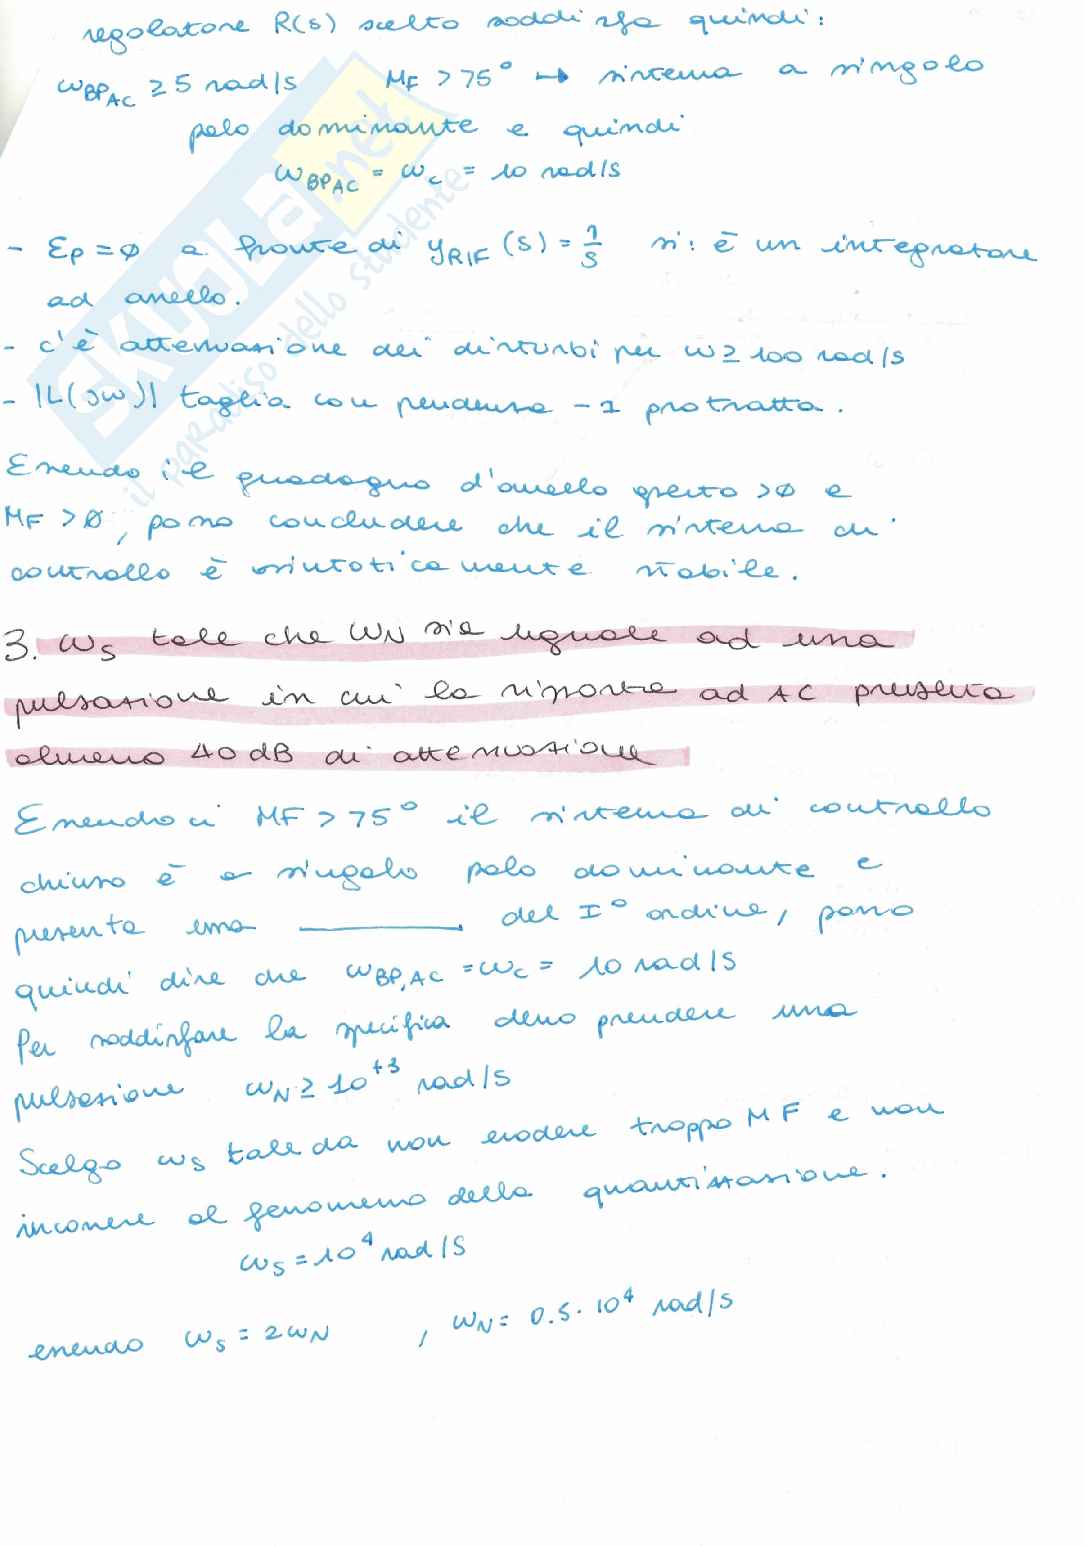 regolatore R(s) scelto soddisfa quindi:
ωBPAC ≥ 5 rad/s MF > 75° ↦ sistema a singolo
polo dominante e quindi
ωBPAC = ωc = 10 rad/s
- εp = ∅ a fronte di yRIF(s) = 1/s sì: è un integratore
ad anello.
- c'è attenuazione dei disturbi per ω ≥ 100 rad/s
- |L(jω)| taglia con pendenza -1 protratta.
Essendo il guadagno d'anello aperto >∅ e
MF >∅, posso concludere che il sistema di
controllo è asintoticamente stabile.
3. ωs tale che ωN sia uguale ad una
pulsazione in cui la risposta ad AC presenta
almeno 40 dB di attenuazione
Essendoci MF > 75° il sistema di controllo
chiuso è a singolo polo dominante e
presenta una ———— del I° ordine, posso
quindi dire che ωBP,AC = ωc = 10 rad/s
Per soddisfare la specifica devo prendere una
pulsazione ωN ≥ 10+3 rad/s
Scelgo ωs tale da non erodere troppo MF e non
incorrere al fenomeno della quantizzazione.
ωs = 10⁴ rad/s
essendo ωs = 2ωN , ωN = 0.5·10⁴ rad/s
SKUOLA.net
il paradiso dello studente